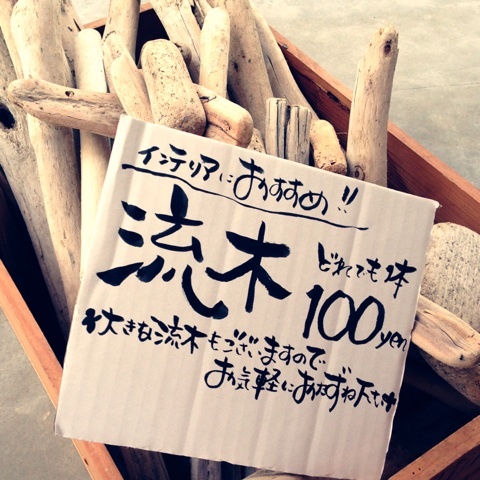 インテリアにおすすめ!!
流木 どれでも1本
100yen
大きな流木もございますので、
お気軽におたずね下さい